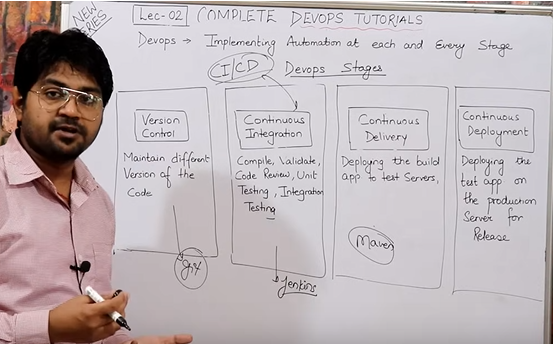 NEW
SERIES
Lec-02 COMPLETE DEVOPS TUTORIALS
Devops → Implementing Automation at each and Every Stage
I/CD Devops Stages
Version
Control
Maintain different
Version of the
Code
Git
Continuous
Integration
Compile, Validate,
Code Review, Unit
Testing, Integration
Testing
Jenkins
Continuous
Delivery
Deploying the build
app to test Servers,
Maven
Continuous
Deployment
Deploying the
test app on
the production
Server for
Release